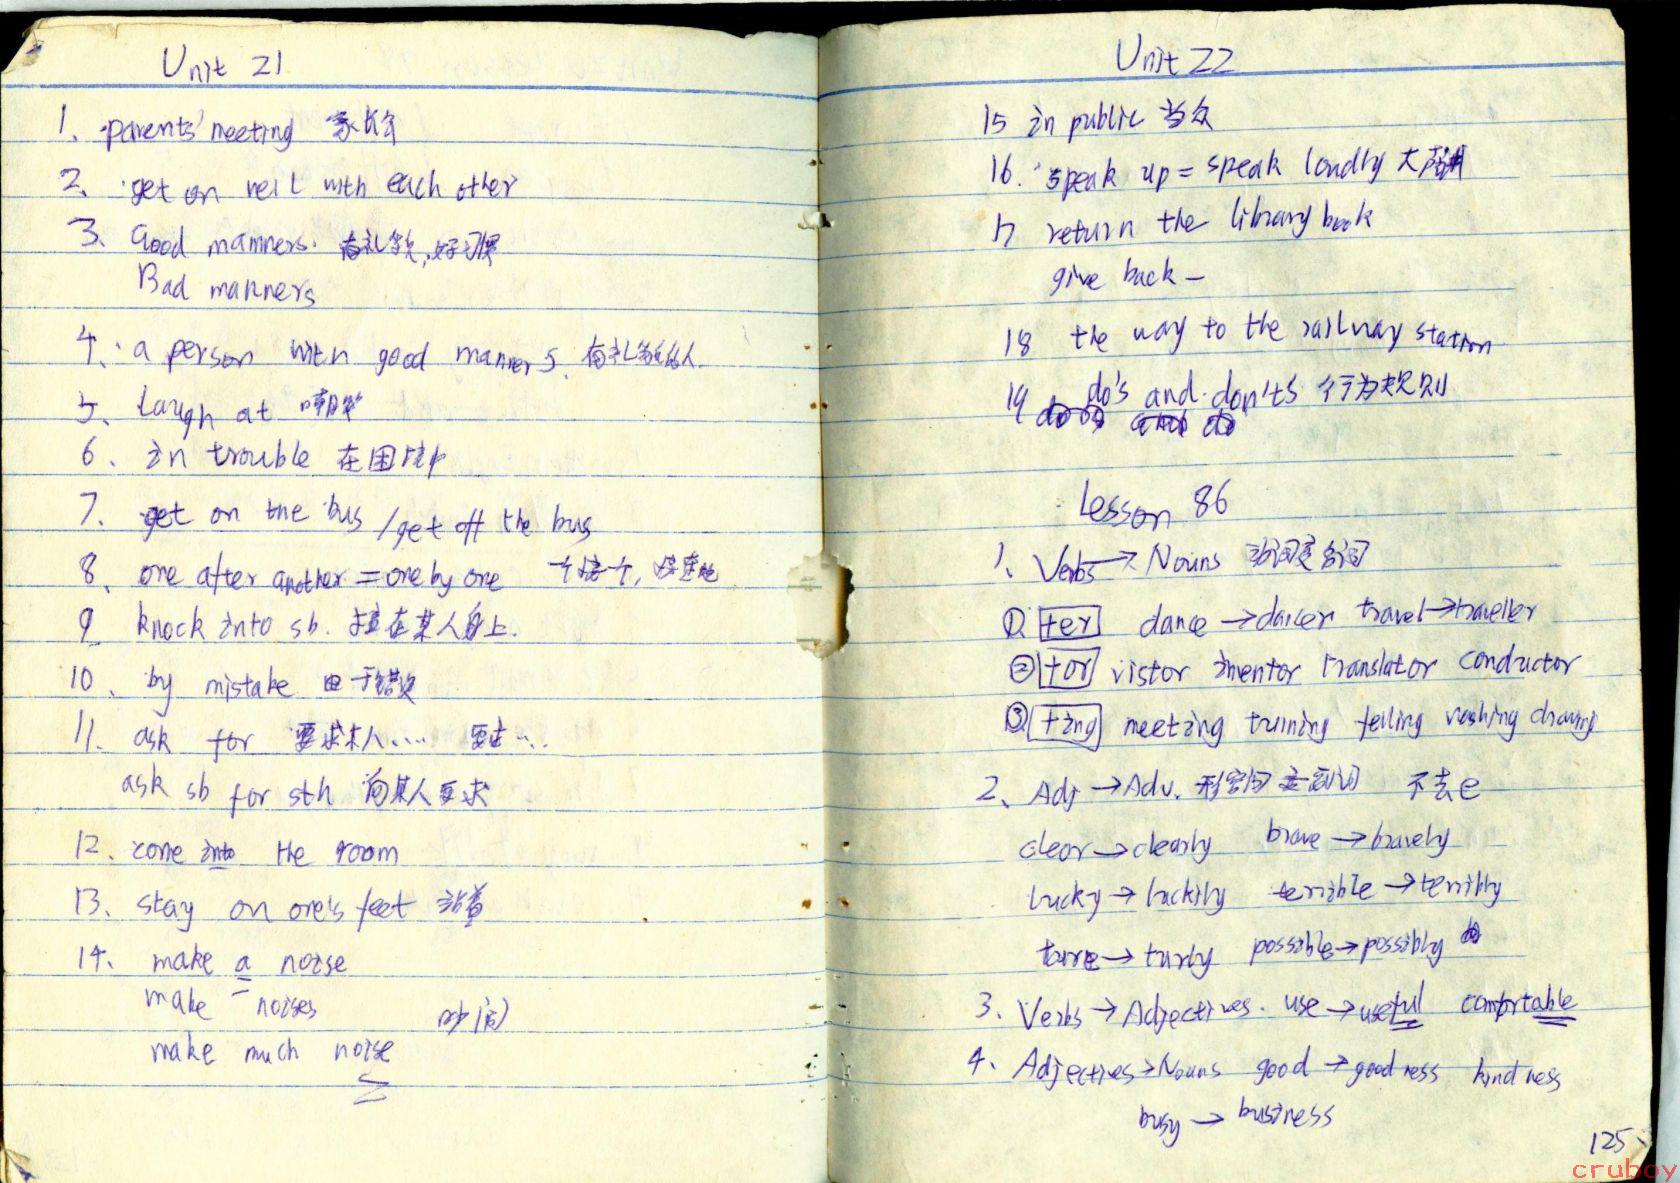 Unit 21
1. parents' meeting 家长会
2. get on well with each other
3. Good manners. 有礼貌,好习惯
Bad manners
4. a person with good manners. 有礼貌的人.
5. laugh at 嘲笑
6. in trouble 在困难中
7. get on the bus /get off the bus
8. one after another = one by one 一个接一个,接连地
9 knock into sb. 撞在某人身上.
10. by mistake 由于错误
11. ask for 要求某人.... 要求...
ask sb for sth 向某人要求
12. come into the room
13. stay on one's feet 站着
14. make a noise
make noises 吵闹
make much noise
Unit 22
15 in public 当众
16. speak up = speak loudly 大声讲
17 return the library book
give back —
18 the way to the railway station
19 do's and don'ts 行为规则
Lesson 86
1. Verbs → Nouns 动词变名词
① +er dance → dancer travel → traveller
② +or vistor inventor translator conductor
③ +ing meeting turning feeling washing drawing
2. Adj → Adv. 形容词变副词 不去e
clear → clearly brave → bravely
lucky → luckily terrible → terribly
ture → turly possible → possibly
3. Verbs → Adjectives. use → useful comfortable
4. Adjectives → Nouns good → goodness kindness
busy → business
125
cruboy